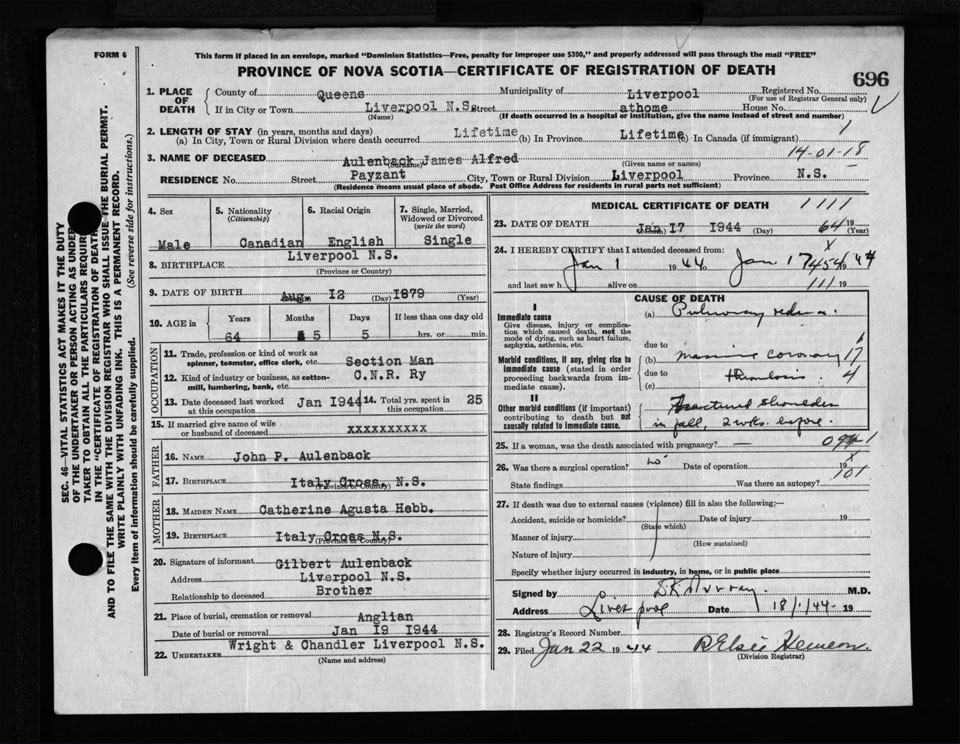 FORM 6
This form if placed in an envelope, marked "Dominion Statistics—Free, penalty for improper use $300," and properly addressed will pass through the mail "FREE"
PROVINCE OF NOVA SCOTIA—CERTIFICATE OF REGISTRATION OF DEATH
696
1. PLACE OF DEATH
County of Queens Municipality of Liverpool Registered No.
(For use of Registrar General only)
If in City or Town Liverpool N.S. Street athome House No.
(Name) (If death occurred in a hospital or institution, give the name instead of street and number)
2. LENGTH OF STAY (in years, months and days)
(a) In City, Town or Rural Division where death occurred Lifetime (b) In Province Lifetime (c) In Canada (if immigrant)
14-01-18
3. NAME OF DECEASED Aulenback James Alfred
(Surname) (Given name or names)
RESIDENCE No. Street Payzant City, Town or Rural Division Liverpool Province N.S.
(Residence means usual place of abode. Post Office Address for residents in rural parts not sufficient)
4. Sex Male
5. Nationality (Citizenship) Canadian
6. Racial Origin English
7. Single, Married, Widowed or Divorced (write the word) Single
8. BIRTHPLACE Liverpool N.S.
(Province or Country)
9. DATE OF BIRTH Aug. 12 (Day) 1879 (Year)
10. AGE in Years Months Days If less than one day old
64 5 5 hrs. or min.
OCCUPATION
11. Trade, profession or kind of work as spinner, teamster, office clerk, etc. Section Man
12. Kind of industry or business, as cotton-mill, lumbering, bank, etc. C.N.R. Ry
13. Date deceased last worked at this occupation Jan 1944
14. Total yrs. spent in this occupation 25
15. If married give name of wife or husband of deceased xxxxxxxxxx
FATHER
16. NAME John P. Aulenback
17. BIRTHPLACE Italy Cross, N.S.
(Province or Country)
MOTHER
18. MAIDEN NAME Catherine Agusta Hebb.
19. BIRTHPLACE Italy Cross N.S.
(Province or Country)
20. Signature of informant Gilbert Aulenback
Address Liverpool N.S.
Relationship to deceased Brother
21. Place of burial, cremation or removal Anglian
Date of burial or removal Jan 19 1944
22. UNDERTAKER Wright & Chandler Liverpool N.S.
(Name and address)
MEDICAL CERTIFICATE OF DEATH
1111
23. DATE OF DEATH Jan 17 1944 (Day) 19 (Year)
64
24. I HEREBY CERTIFY that I attended deceased from:
Jan 1 1944 Jan 17 1944
7454
and last saw h alive on 19
111
CAUSE OF DEATH
I
Immediate cause
Give disease, injury or complication which caused death, not the mode of dying, such as heart failure, asphyxia, asthenia, etc.
(a) Pulmonary edema.
due to
Morbid conditions, if any, giving rise to immediate cause (stated in order proceeding backwards from immediate cause).
(b) massive coronary
due to thrombosis.
(c)
17
4
II
Other morbid conditions (if important) contributing to death but not causally related to immediate cause.
Fractured shoulder
in fall, 2 wks. before.
25. If a woman, was the death associated with pregnancy? —
26. Was there a surgical operation? no Date of operation 19
101
State findings Was there an autopsy?
27. If death was due to external causes (violence) fill in also the following:—
Accident, suicide or homicide? Date of injury 19
(State which)
Manner of injury
(How sustained)
Nature of injury
Specify whether injury occurred in industry, in home, or in public place
Signed by D.K. Murray. M.D.
Address Liverpool Date 18/1/44- 19
28. Registrar's Record Number
29. Filed Jan 22 1944
(Division Registrar)
SEC. 46—VITAL STATISTICS ACT MAKES IT THE DUTY
OF THE UNDERTAKER OR PERSON ACTING AS UNDER-
TAKER TO OBTAIN ALL THE PARTICULARS REQUIR
IN THE "CERTIFICATE OF REGISTRATION OF DEATH
AND TO FILE THE SAME WITH THE DIVISION REGISTRAR WHO SHALL ISSUE THE BURIAL PERMIT.
WRITE PLAINLY WITH UNFADING INK. THIS IS A PERMANENT RECORD.
Every item of information should be carefully supplied. (See reverse side for instructions.)